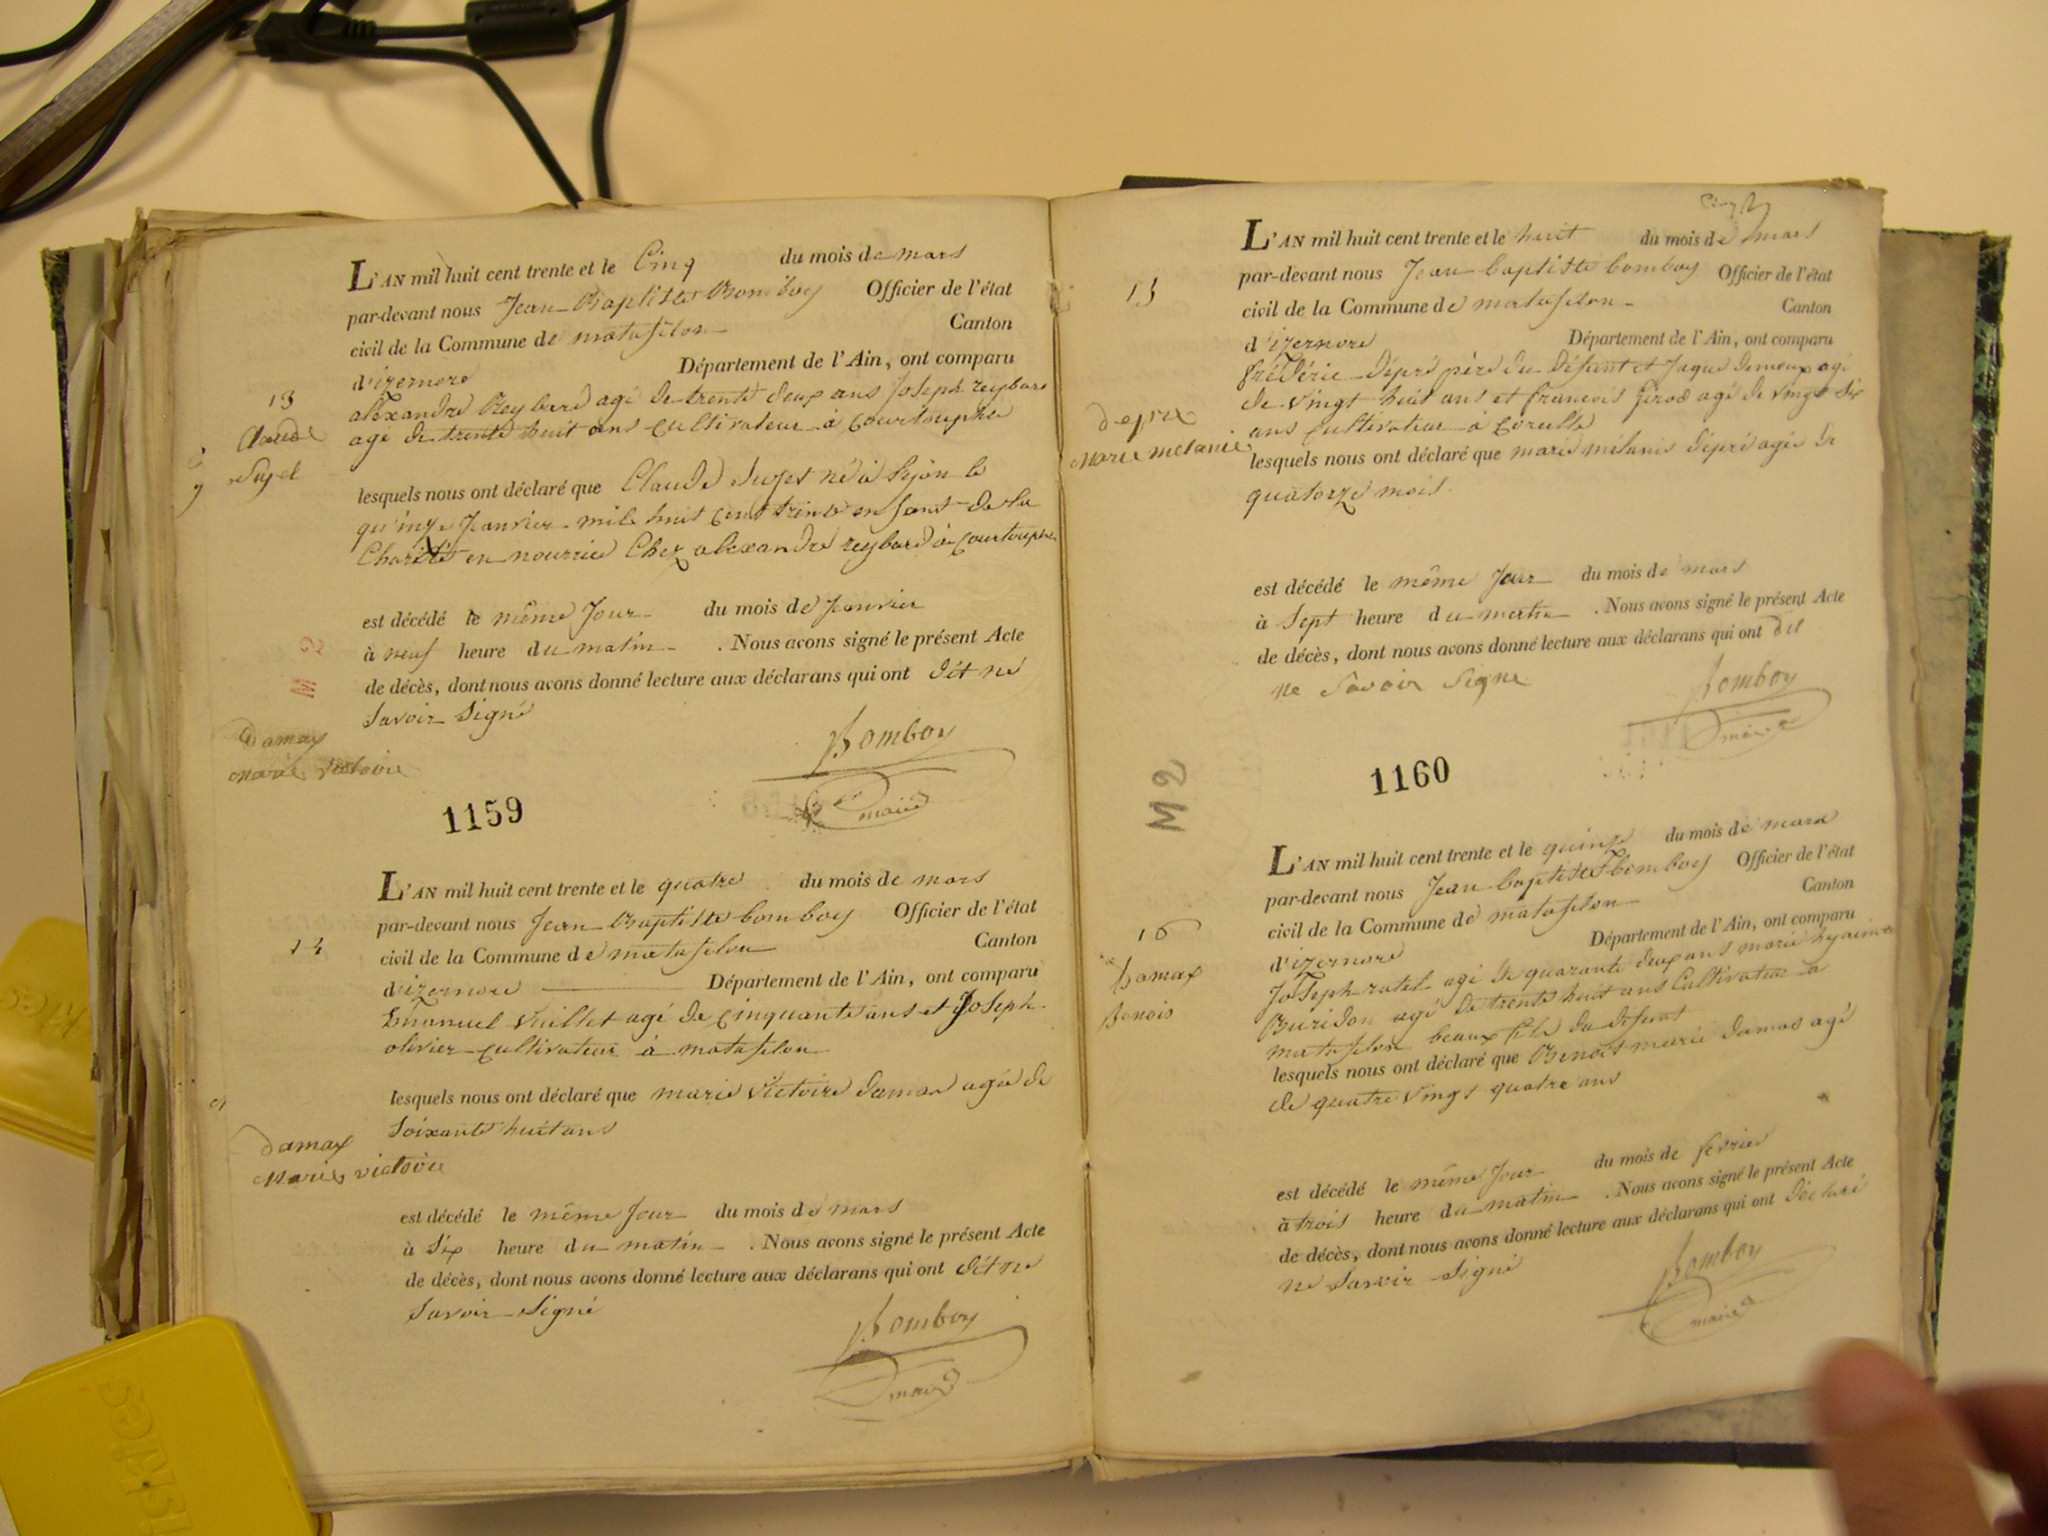 L'AN mil huit cent trente et le Cinq du mois de mars
par-devant nous Jean Baptiste Bomboy Officier de l'état
civil de la Commune de matafelon Canton
d'izernore Département de l'Ain, ont comparu
13
alexandre Reybard agé de trente deux ans Joseph reybard
agé de trente huit ans cultivateur à Courtouphle
Claude
lesquels nous ont déclaré que Claude né à lyon le
quinze Janvier mile huit cent trente enfant de la
Charité en nourrice Chez alexandre reybard à Courtouphle
est décédé le même Jour du mois de Janvier
à neuf heure du matin . Nous avons signé le présent Acte
de décès, dont nous avons donné lecture aux déclarans qui ont dit ne
Savoir Signé
M 2
Bomboy
maire
Damas
Marie Victoire
1159
L'AN mil huit cent trente et le quatre du mois de mars
par-devant nous Jean Baptiste bomboy Officier de l'état
14
civil de la Commune de matafelon Canton
d'izernore Département de l'Ain, ont comparu
Emanuel Vuillet agé de cinquante ans et Joseph
olivier cultivateur à matafelon
lesquels nous ont déclaré que marie Victoire damas agée de
Soixante huit ans
Damas
Marie victoire
est décédé le même Jour du mois de mars
à Six heure du matin . Nous avons signé le présent Acte
de décès, dont nous avons donné lecture aux déclarans qui ont dit ne
Savoir Signé
Bomboy
maire
L'AN mil huit cent trente et le huit du mois de mars
par-devant nous Jean baptiste bomboy Officier de l'état
15
civil de la Commune de matafelon Canton
d'izernore Département de l'Ain, ont comparu
frédéric dépré père du défunt et Jaque agé
de vingt huit ans et francois Girod agé de vingt Six
ans cultivateur à
depre
Marie melanie
lesquels nous ont déclaré que marie mélanie dépré agée de
quatorze mois
est décédé le même Jour du mois de mars
à Sept heure du matin . Nous avons signé le présent Acte
de décès, dont nous avons donné lecture aux déclarans qui ont dit
ne Savoir Signe
Bomboy
maire
1160
M 2
L'AN mil huit cent trente et le quinze du mois de mars
par-devant nous Jean baptiste bomboy Officier de l'état
16
civil de la Commune de matafelon Canton
d'izernore Département de l'Ain, ont comparu
Joseph ratel agé de quarante deux ans marie hyacinte
Buridon agé de trente huit ans Cultivateur à
matafelon beaux fils du défunt
Damas
Benois
lesquels nous ont déclaré que Benoit marie damas agé
de quatre vings quatre ans
est décédé le même Jour du mois de fevrier
à trois heure du matin . Nous avons signé le présent Acte
de décès, dont nous avons donné lecture aux déclarans qui ont déclaré
ne Savoir Signé
Bomboy
maire